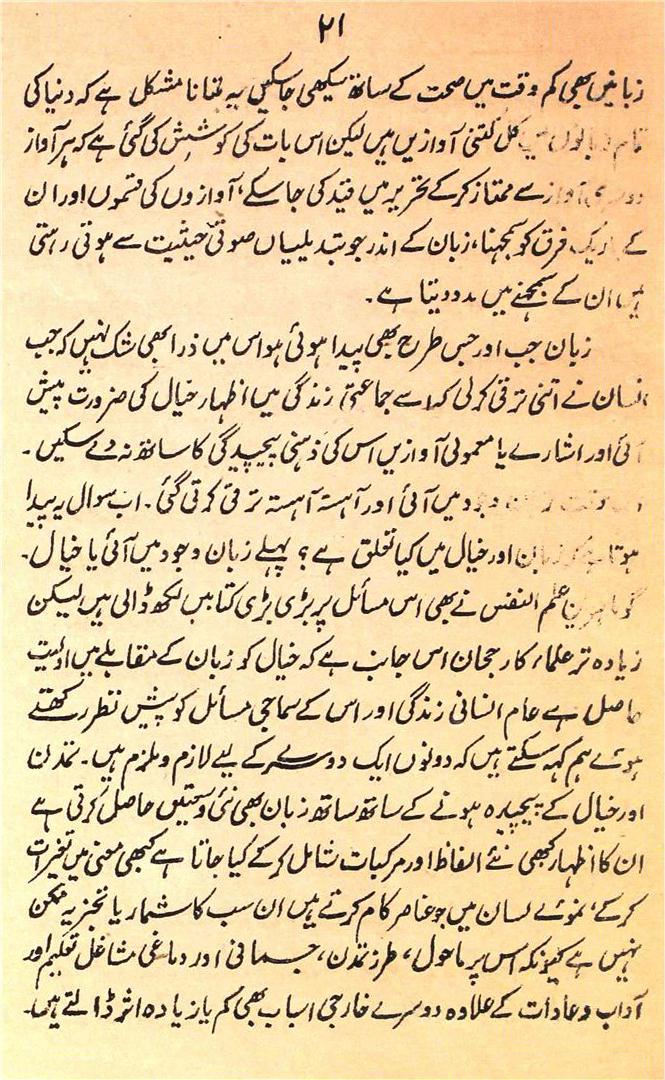 ۲۱
زبانیں بھی کم وقت میں صحت کے ساتھ سیکھی جا سکیں یہ بتانا مشکل ہے کہ دنیا کی
تمام زبانوں میں کل کتنی آوازیں ہیں لیکن اس بات کی کوشش کی گئی ہے کہ ہر آواز
دوسری آواز سے ممتاز کر کے تحریر میں قید کی جا سکے، آوازوں کی قسموں اور ان
کے باریک فرق کو سمجھنا، زبان کے اندر جو تبدیلیاں صوتی حیثیت سے ہوتی رہتی
ہیں ان کے سمجھنے میں مدد دیتا ہے۔
زبان جب اور جس طرح بھی پیدا ہوئی ہو اس میں ذرا بھی شک نہیں کہ جب
انسان نے اتنی ترقی کر لی کہ اسے جماعتی زندگی میں اظہار خیال کی ضرورت پیش
آئی اور اشارے یا معمولی آوازیں اس کی ذہنی پیچیدگی کا ساتھ نہ دے سکیں۔
وقت زبان وجود میں آئی اور آہستہ آہستہ ترقی کرتی گئی۔ اب سوال یہ پیدا
ہوتا ہے کہ زبان اور خیال میں کیا تعلق ہے؟ پہلے زبان وجود میں آئی یا خیال۔
گو ماہرین علم النفس نے بھی اس مسائل پر بڑی بڑی کتابیں لکھ ڈالی ہیں لیکن
زیادہ تر علماء کا رجحان اس جانب ہے کہ خیال کو زبان کے مقابلے میں اولیت
حاصل ہے عام انسانی زندگی اور اس کے سماجی مسائل کو پیش نظر رکھتے
ہوئے ہم کہہ سکتے ہیں کہ دونوں ایک دوسرے کے لیے لازم و ملزم ہیں۔ تمدن
اور خیال کے پیچیدہ ہونے کے ساتھ ساتھ زبان بھی نئی وسعتیں حاصل کرتی ہے
ان کا اظہار کبھی نئے الفاظ اور مرکبات شامل کر کے کیا جاتا ہے کبھی معنی میں تغیرات
کر کے، نموئے لسان میں جو عناصر کام کرتے ہیں ان سب کا شمار یا تجزیہ ممکن
نہیں ہے کیونکہ اس پر ماحول، طرز تمدن، جسمانی اور دماغی مشاغل تعلیم اور
آداب و عادات کے علاوہ دوسرے خارجی اسباب بھی کم یا زیادہ اثر ڈالتے ہیں۔